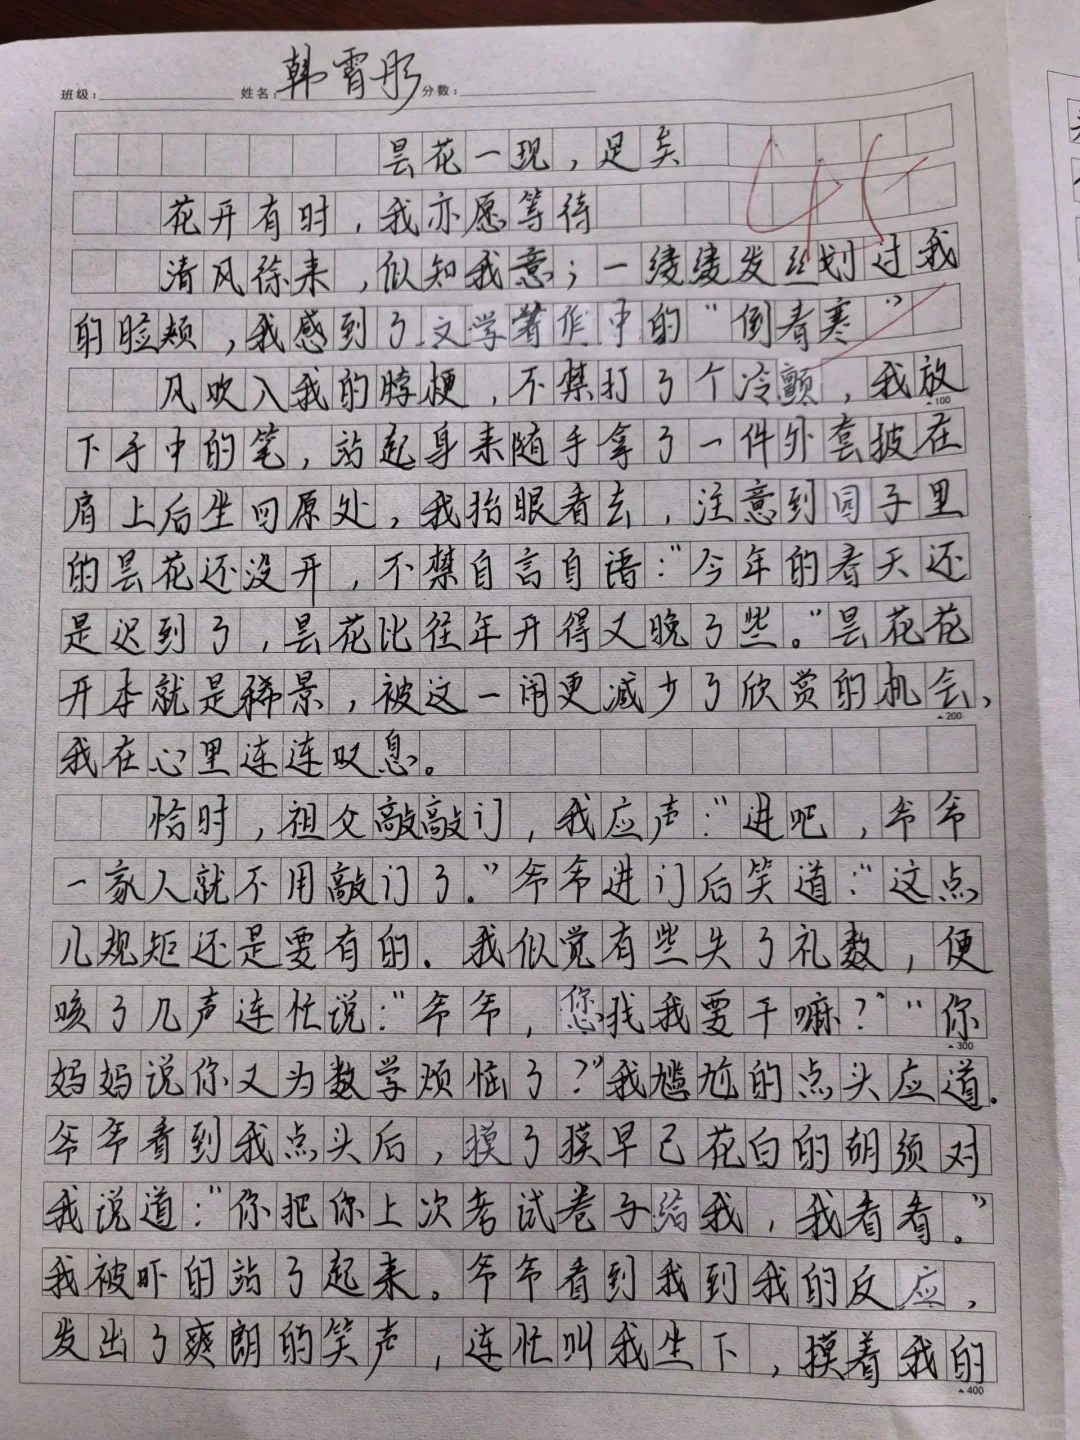 班级： 姓名：韩霄彤 分数：
45
昙花一现，足矣
花开有时，我亦愿等待
清风徐来，似知我意；一缕缕发丝划过我
的脸颊，我感到了文学著作中的“倒春寒”
风吹入我的脖梗，不禁打了个冷颤，我放
▲100
下手中的笔，站起身来随手拿了一件外套披在
肩上后坐回原处，我抬眼看去，注意到园子里
的昙花还没开，不禁自言自语：“今年的春天还
是迟到了，昙花比往年开得又晚了些。”昙花花
开本就是稀景，被这一闹更减少了欣赏的机会，
▲200
我在心里连连叹息。
恰时，祖父敲敲门，我应声：“进吧，爷爷
一家人就不用敲门了。”爷爷进门后笑道：“这点
儿规矩还是要有的．我似觉有些失了礼数，便
咳了几声连忙说：“爷爷，您找我要干嘛？”“你
▲300
妈妈说你又为数学烦恼了？”我尴尬的点头应道．
爷爷看到我点头后，摸了摸早已花白的胡须对
我说道：“你把你上次考试卷子给我，我看看。”
我被吓的站了起来。爷爷看到我到我的反应，
发出了爽朗的笑声，连忙叫我坐下，摸着我的
▲400